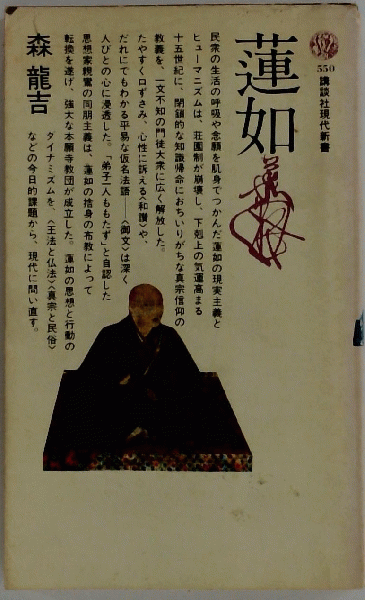 550
講談社現代新書
蓮如
民衆の生活の呼吸や念願を肌身でつかんだ蓮如の現実主義と
ヒューマニズムは、荘園制が崩壊し、下剋上の気運高まる
十五世紀に、閉鎖的な知識帰命におちいりがちな真宗信仰の
教義を、一文不知の門徒大衆に広く解放した。
たやすく口ずさみ、心性に訴える〈和讃〉や、
だれにでもわかる平易な仮名法語――〈御文〉は深く
人びとの心に浸透した。「弟子一人ももたず」と自認した
思想家親鸞の同朋主義は、蓮如の捨身の布教によって
転換を遂げ、強大な本願寺教団が成立した。蓮如の思想と行動の
ダイナミズムを、〈王法と仏法〉〈真宗と民俗〉
などの今日的課題から、現代に問い直す。
森 龍吉